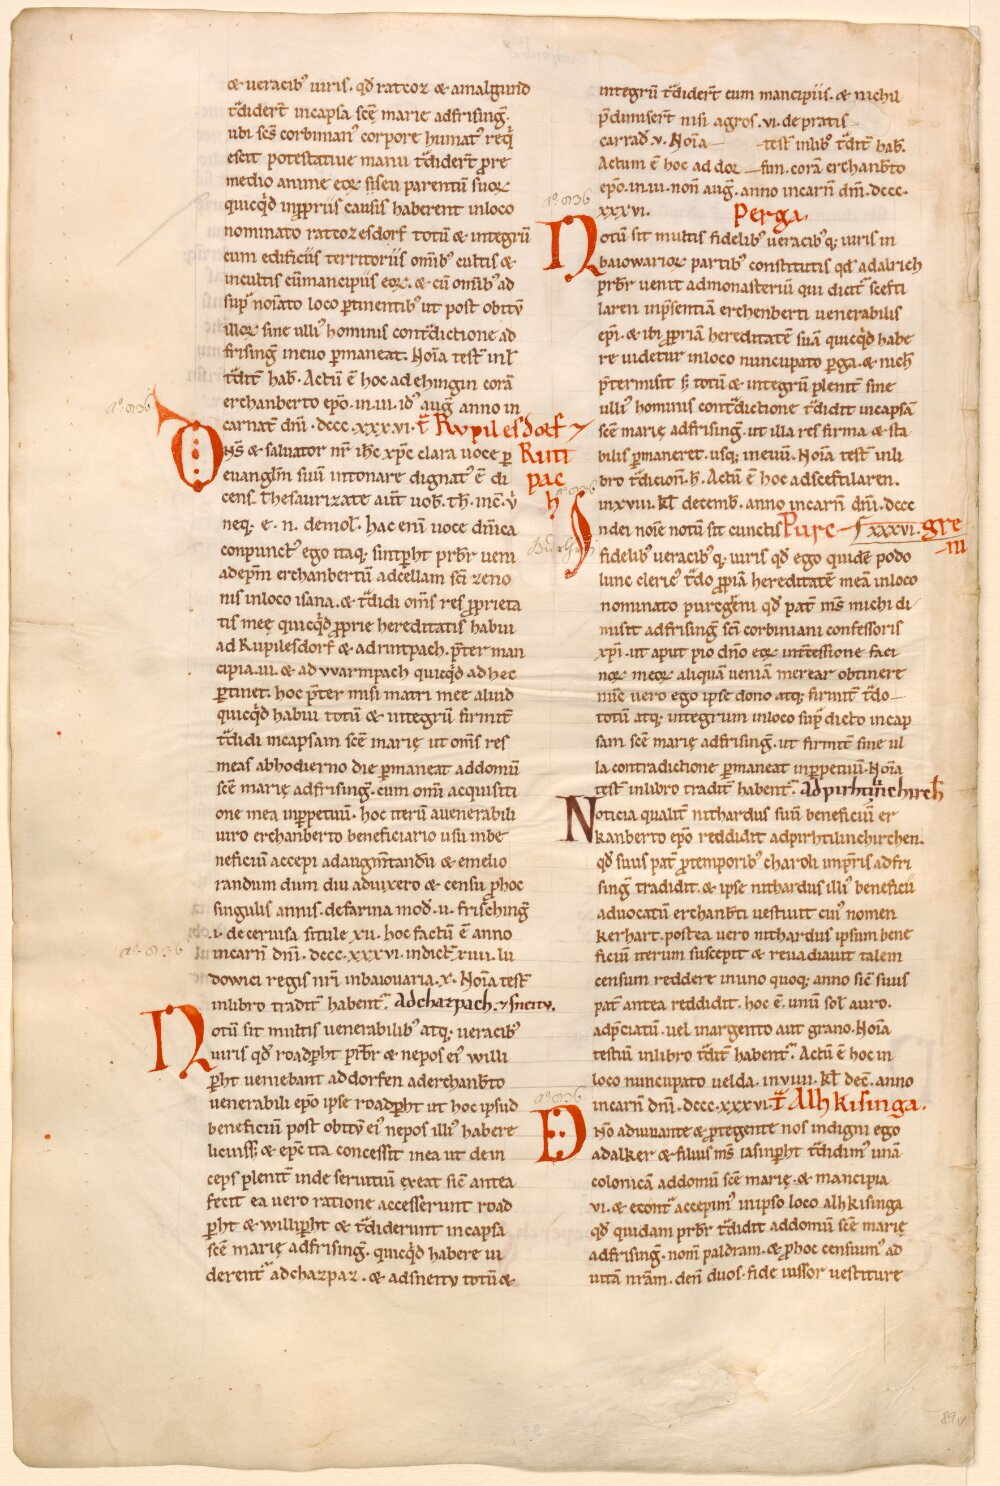 & veracib' viris. qd̄ ratcoz & amalgund
t̄didert̄ incapsa scē marie adfrising̅.
ubi scs̄ corbinian' corpore humat' req̇
escit potestative manu t̄didert̄ p̄re
medio anime eoꝝ si seu parentū suoꝝ
quicq̇d inpp̄riis causis haberent inloco
nominato rattozesdorf totū & integrū
cum edificiis territoriis om̄ib' cultis &
incultis cū mancipiis eoꝝ. & cū om̄ib' ad
sup̄ noīato loco ꝑtinentib' ut post obitū
illoꝝ sine ulli' hominis cont̄dictione ad
frising̅ inevo ꝑmaneat. Noīa test̄ inl̄
t̄dit̄ hab̄. Actū ē hoc ad ehingin corā
erchanberto ep̄o. in. iii. id' aug̅ anno in
carnat̄ dn̄i. dccc. xxxvi. t̄ Rvpilesdorf ⁊
Rint
pac
h
DNS̄ & salvator nr̄ ih̄c xp̄c clara voce ꝑ
evanglm̄ suū intonare dignat' ē di
cens. Thesaurizate aūt vob̄. th̄. inc̄. v̇
neq;. e. n. demol̄. hac enī voce dn̄ica
conpunct' ego itaq; sintꝑht prb̄r veni
adep̄m erchanbertū adcellam scī zeno
nis inloco isana. & t̄didi om̄s res p̄prieta
tis meę quicq̇d p̄prie hereditatis habui
ad Rupilesdorf & adrintpach. p̄ter man
cipia. iii. & ad warmpach quicq̇d ad hec
ꝑtinet. hoc p̄ter misi matri mee aliud
quicq̇d habui totū & integrū firmit̄
t̄didi incapsam scē marię ut om̄s res
meas abhodierno die ꝑmaneat addomū
scē marię adfrising̅. cum omni acquisiti
one mea inꝑpetuū. hoc iterū avenerabili
viro erchanberto beneficiario usu inbe
neficiū accepi adaugm̄tandū & emelio
randum dum diu advixero & censu p̄hoc
singulis annis. defarina mod̄. v. frisching̅
.i. decervisa situle xv. hoc factū ē anno
incarn̄ dn̄i. dccc. xxxvi. indict̄ xiiii. lu
dowici regis nr̄i inbaiovaria. x. Noīa test̄
inlibro tradit̄ habent̄. Adcharpach. ⁊ sneitv.
Notū sit multis venerabilib' atq; veracib'
viris qd̄ roadꝑht prb̄r & nepos ei' willi
ꝑht veniebant addorfen aderchanb̄to
venerabili ep̄o ipse roadꝑht ut hoc ipsud
beneficiū post obitū ei' nepos illi' habere
licuiss;. & ep̄c ita concessit inea ut dein
ceps plenit̄ inde servitiū exeat sic̄ antea
fecit ea vero ratione accesserunt road
ꝑht & williꝑht & t̄diderunt incapsa
scē marię adfrising̅. quicq̇d habere vi
derent̄ adcharpaz. & adsneitv totū &
integrū t̄didert̄ cum mancipiis. & nichil
p̄dimisert̄ nisi agros. vi. depratis
carrad̄. v. Noīa test̄ inlib' t̄dit̄ hab̄.
Actum ē hoc ad dor fun. corā erchanb̄to
ep̄o. in. iii. non̄ aug̅. anno incarn̄ dn̄i. dccc.
xxxvi. Perga.
Notū sit multis fidelib' veracib'q; viris in
baiowarioꝝ partib' constitutis qd̄ adalrich
prb̄r venit admonasteriū qui dicit̄ scefti
laren inp̄sentiā erchenberti venerabilis
ep̄i. & ibi p̄priā hereditatē suā quicq̇d habe
re videtur inloco nuncupato ꝑga. & nich̄
p̄termisit s; totū & integrū plenit̄ sine
ulli' hominis cont̄dictione t̄didit incapsā
scē marię adfrising̅. ut illa res firma & sta
bilis ꝑmaneret. usq; inevū. Noīa test̄ inli
bro t̄dicion̄. h̄. Actū ē hoc adsceftilaren.
inxviii. kl̄ decemb̄. anno incarn̄ dn̄i. dccc
xxxvi.
Indei noīe notū sit cunctis Purc gre
ni
fidelib' veracib'q; viris qd̄ ego quidē podo
lunc cleric' t̄do p̄priā hereditatē meā inloco
nominato puregeni qd̄ pat̄ ms̄ michi di
misit adfrising̅ scī corbiniani confessoris
xp̄i. ut aput pio dn̄o eoꝝ int̄cessione faci
noꝝ meoꝝ aliquā veniā merear obtinere
nūc vero ego ipse dono atq; firmit̄ t̄do
totū atq; integrum inloco sup̄dicto incap
sam scē marię adfrising̅. ut firmit̄ sine ul
la contradictione ꝑmaneat inꝑpetuū. Noīa
test̄ inlibro tradit̄ habent̄. Adpirhtilinchirch̄
Noticia qualit̄ nithardus suū beneficiū er
kanberto ep̄o reddidit adpirhtilinchirchen.
qd̄ suus pat̄ p̄temporib' charoli imp̄ris adfri
sing̅ tradidit. & ipse nithardus illi' beneficii
advocatū erchanb̄ti vestivit cui' nomen
kerhart. postea vero nithardus ipsum bene
ficiū iterum suscepit & rewadiavit talem
censum reddere in uno quoq; anno sic̄ suus
pat̄ antea reddidit. hoc ē. unū sol̄ auro.
adp̄ciatū. vel inargento aut grano. Noīa
testiū inlibro t̄dit̄ habent̄. Actū ē hoc in
loco nuncupato velda. in viiii. kl̄ dec̄. anno
incarn̄ dn̄i. dccc. xxxvi. t̄ Alhkisinga.
DNO adiuvante & p̄tegente nos indigni ego
adalker & filius ms̄ iasinꝑht t̄didim' unā
colonicā addomū scē marię. & mancipia
vi. & econt̄ accepim' inipso loco alhkisinga
qd̄ quidam prb̄r t̄didit addomū scē marię
adfrising̅. nom̄ paldram. & p̄hoc censuim' ad
vitā nr̄am. den̄ duos. fide iussor vestiture
89v